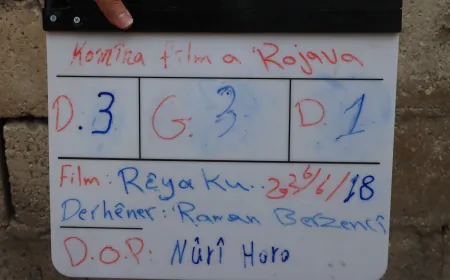 Komîna film a Rojava
D. 3 G. 3 D. 1
Film: Rêya Ku.. /6/18
Derhêner: Raman Berzencî
D.O.P: Nûrî Horo